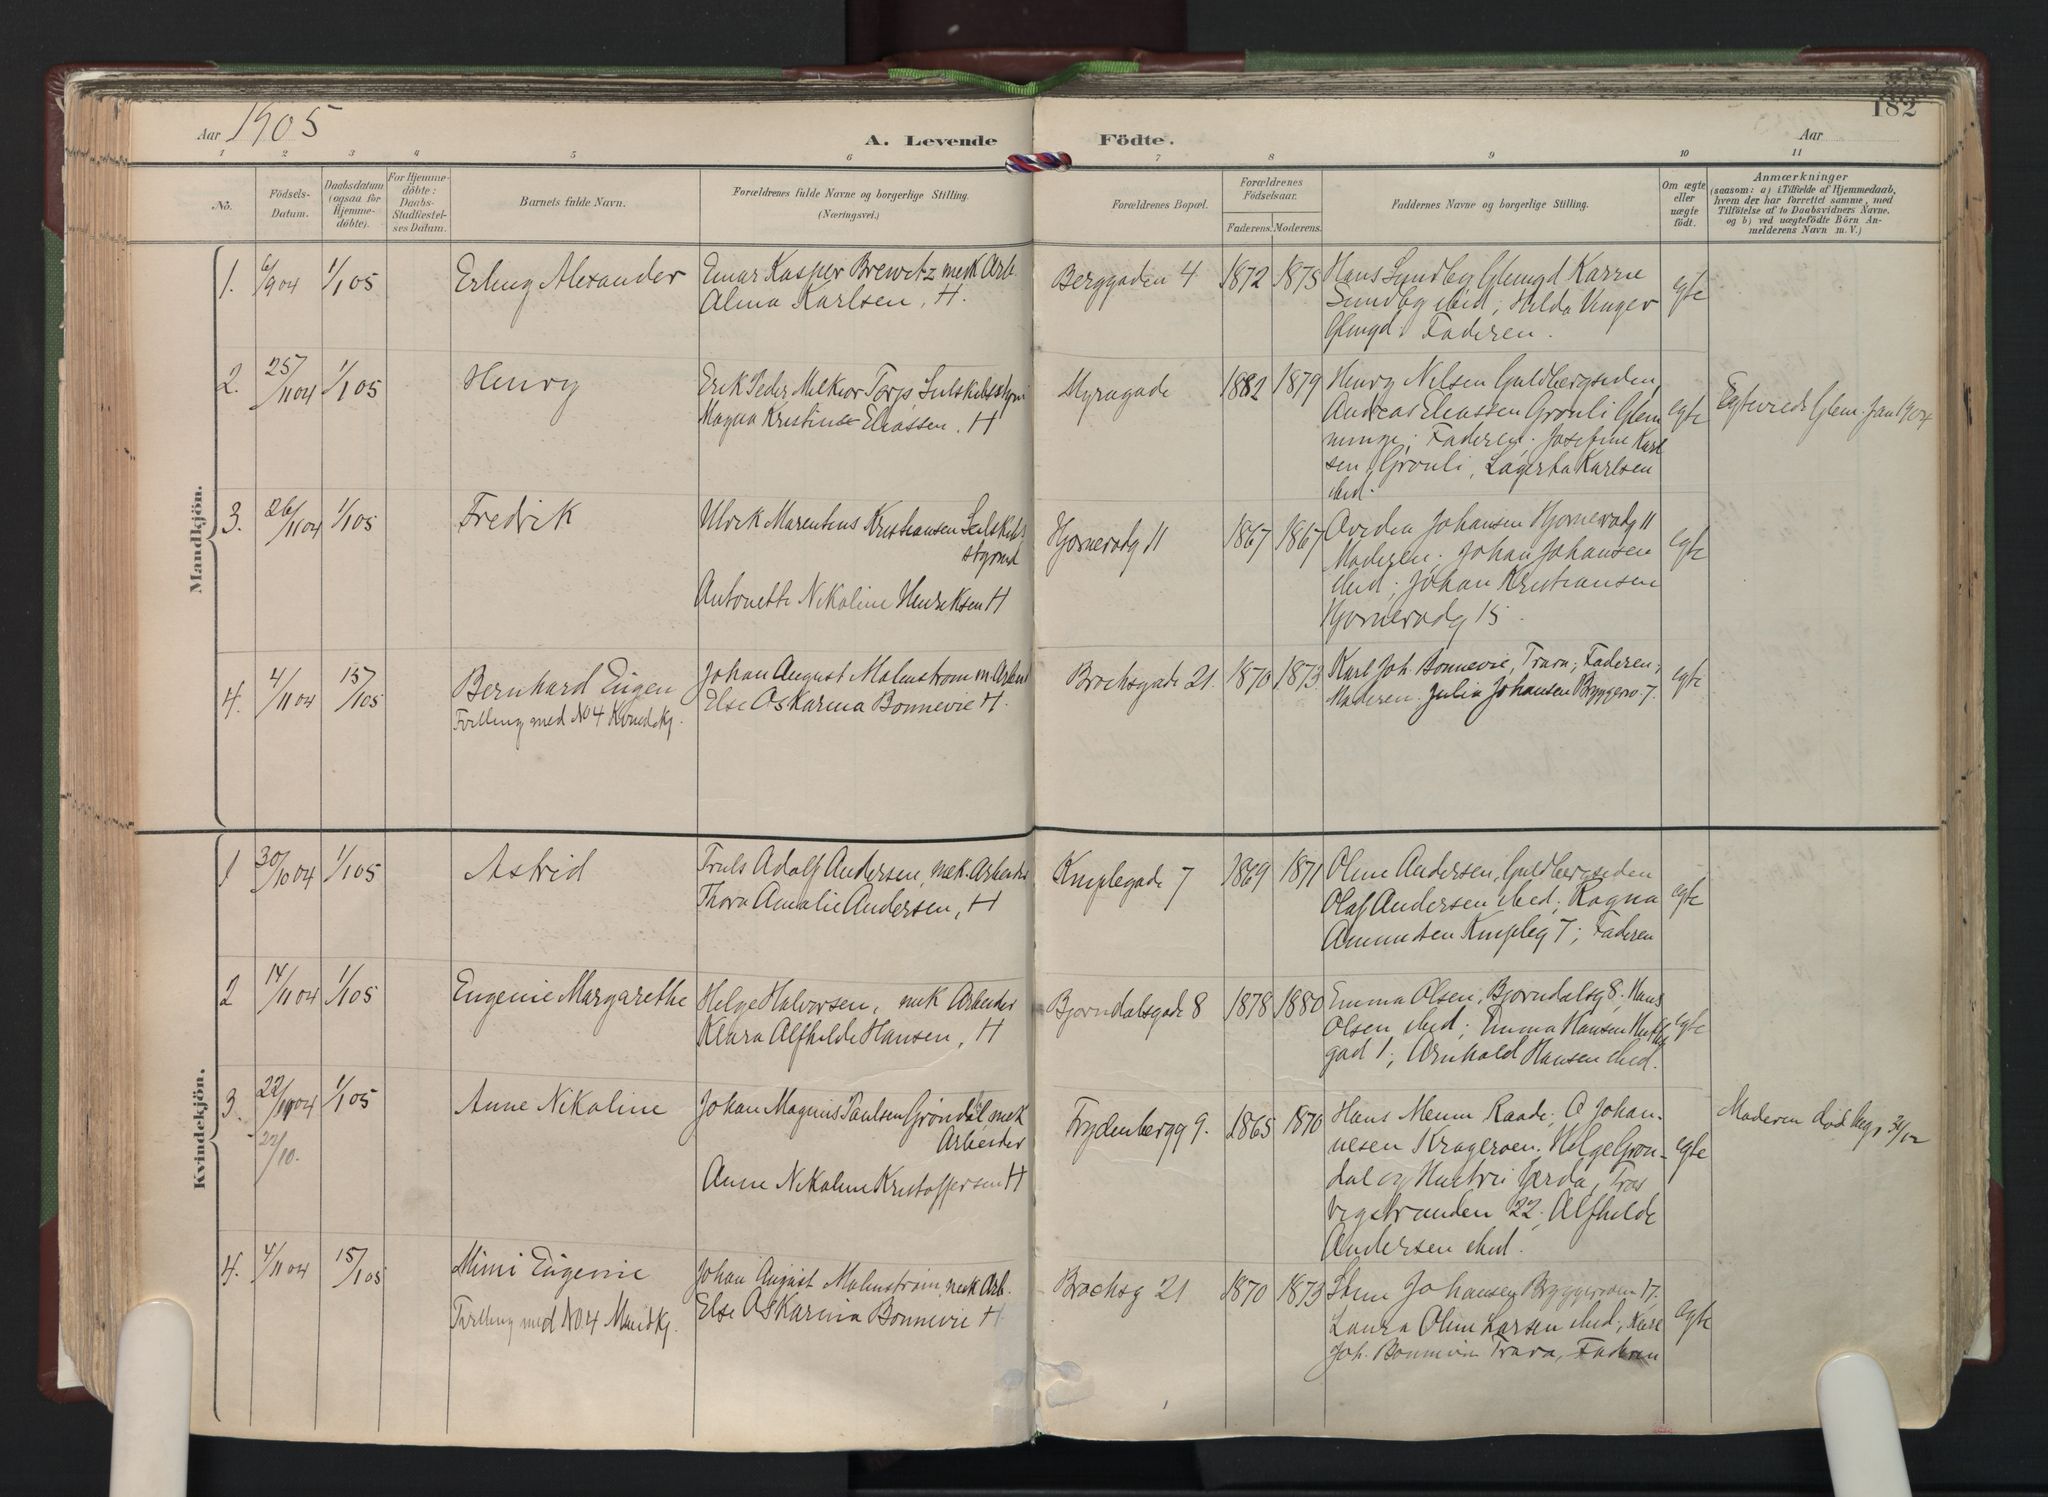 182
Aar 1905
A. Levende Födte.
Aar
1 2 3 4 5 6 7 8 9 10 11
No.
Födsels-Datum.
Daabsdatum (ogsaa for Hjemme-döbte).
For Hjemme-döbte: Daabs-Stadfæstel-ses Datum.
Barnets fulde Navn.
Forældrenes fulde Navne og borgerlige Stilling.
(Næringsvei.)
Forældrenes Bopæl.
Forældrenes Födselsaar.
Faderens. Moderens.
Faddernes Navne og borgerlige Stilling.
Om ægte eller uægte födt.
Anmærkninger
(saasom: a) i Tilfælde af Hjemmedaab,
hvem der har forrettet samme, med
Tilföielse af to Daabsvidners Navne,
og b) ved uægtefödte Börn An-
melderens Navn m. V.)
Mandkjön.
1. 6/9 04 1/1 05 Erling Alexander
Einar Kasper Brewitz mek Arb.
Alma Karlsen, H.
Berggaden 4 1872 1875
Hans Sundby Glemgd Karen
Sundby ibid; Hilda Unger
Glmgd. Faderen.
egte
2. 25/11 04 1/1 05 Henry
Erik Peder Melkior Torp
Magna Kristine Eliassen. H
Myragade 1882 1879
Henry Nilsen Guldbergsiden,
Andreas Eliassen Grönli Glem
minge; Faderen. Josefine Karl
sen, Grönli, Lagerta Karlsen
ibid.
egte
Egteviede Glem. Jan 1904
3. 26/11 04 1/1 05 Fredrik
Ulrik Marentius Kristiansen Seilskibs
styrmd
Antonette Nikoline Henriksen H
Hjörnerödg 11 1867 1867
Johansen Hjörnerødg 11
Moderen; Johan Johansen
ibid; Johan Kristiansen
Hjornerødg 15.
egte
4. 4/11 04 15/1 05 Bernhard Eugen
Tvilling med No 4 Kvindekj.
Johan August Malmstrøm m. Arbeid
Else Oskarina Bonnevie H.
Brochsgade 21. 1870 1873
Karl Joh. Bonnevie, Trara; Faderen;
Moderen. Julia Johansen Byggerv. 7.
egte
Kvindekjön.
1 30/10 04 1/1 05 Astrid
Truls Adolf Andersen, mek. Arbeider
Thora Amalie Andersen, H
Kniplegade 7 1869 1871
Oline Andersen, Guldbergsiden
Olaf Andersen ibid; Ragna
Amundsen Knipleg 7; Faderen
egte
2 14/11 04 1/1 05 Eugenie Margarethe
Helge Halvorsen, mek Arbeider
Klara Alfhilde Hansen, H
Bjorndalsgade 8 1878 1880
Emma Olsen, Bjorndalsg 8; Hans
Olsen ibid; Emma Hansen
gad 1; Arnhold Hansen ibid.
egte
3. 22/ 04 1/1 05 Anne Nikoline
22/10.
Johan Magnus Paulsen Grøndal mek
Arbeider
Anne Nikoline Kristoffersen H
Frydenbergg 9. 1865 1870
Hans Menne Raade; O Johan-
nesen Krageroen. Helge Grön-
dal og Hustru Gerda, Tros
vigstranden 22; Alfhilde
Andersen ibid.
egte
Moderen död begr 31/12
4. 4/11 04 15/1 05 Mimi Eugenie
Tvilling med No. 4 Mandkj.
Johan August Malmström, mek Arb.
Else Oskarina Bonnevie H
Brochsg 21 1870 1873
Johansen Byggerveien 17,
Laura Oline Larsen ibid; Karl
Joh. Bonnevie Trara, Faderen
egte